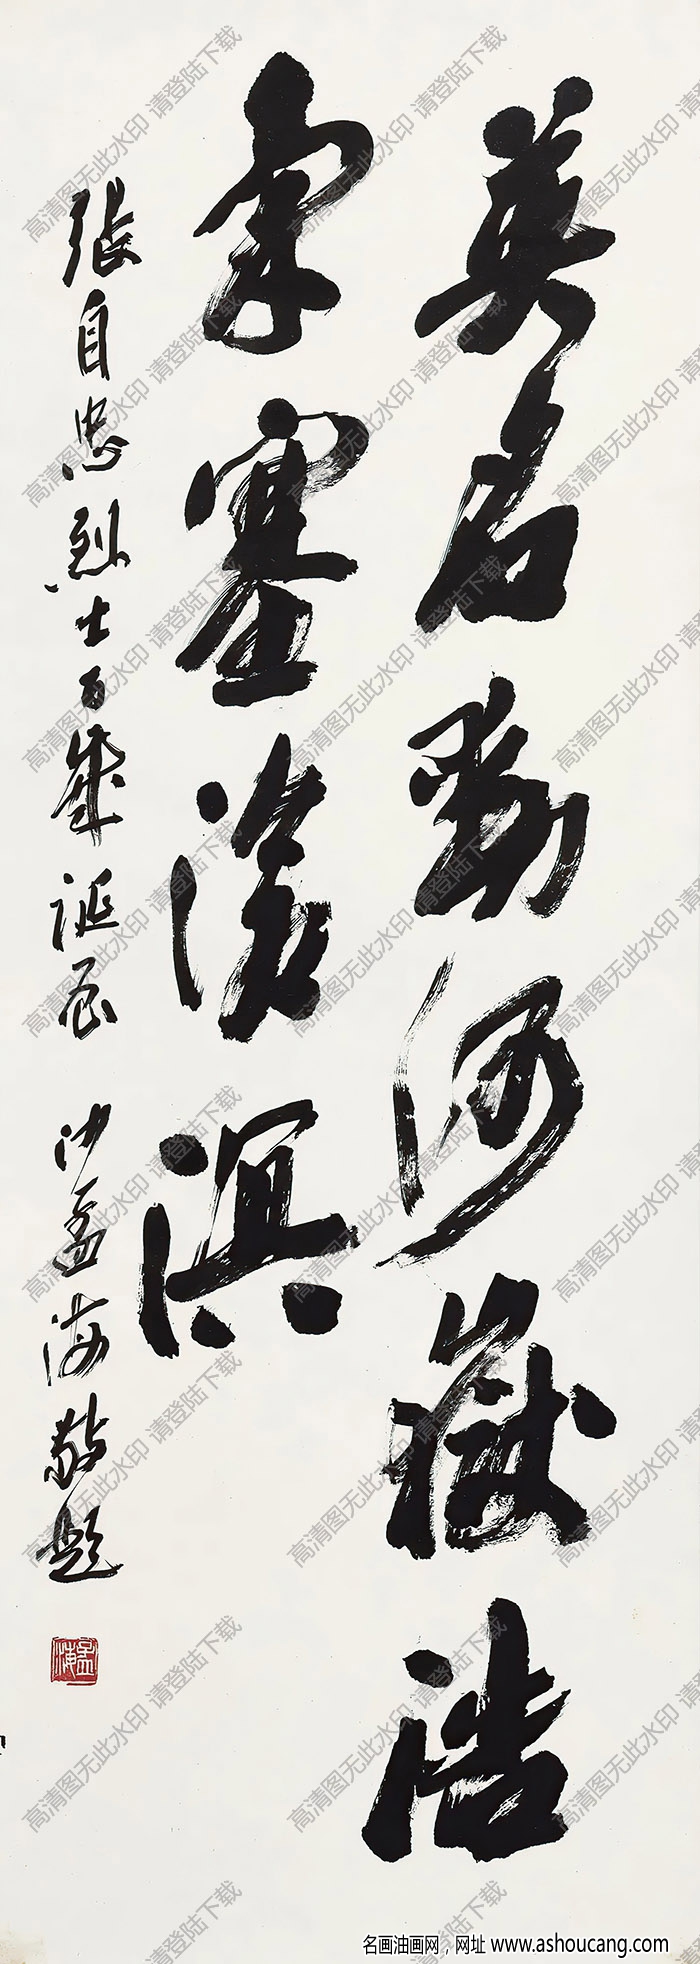 英名動河嶽浩
氣塞滄溟
張自忠烈士百歲誕辰 沙孟海敬題
孟海
高清图无此水印 请登陆下载
名画油画网，网址 www.ashoucang.com